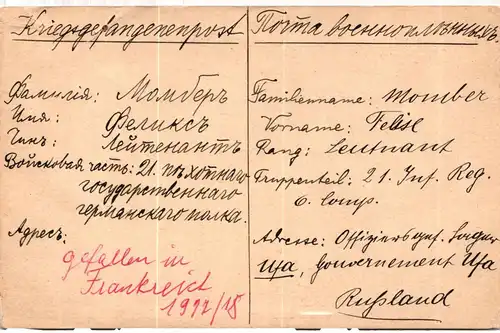 Kriegsgefangenenpost
Фамилія: Момберъ
Имя: Феликсъ
Чинъ: Лейтенантъ
Войсковая часть: 21. пѣхотнаго
государственнаго
германскаго полка.
Адресъ:
gefallen in
Frankreich
Почта военноплѣнныхъ.
Familienname: Momber
Vorname: Felix
Rang: Leutnant
Truppenteil: 21. Inf. Reg.
6. Comp.
Adresse: Offiziersgef. Lager
Ufa, Gouvernement Ufa
Rußland